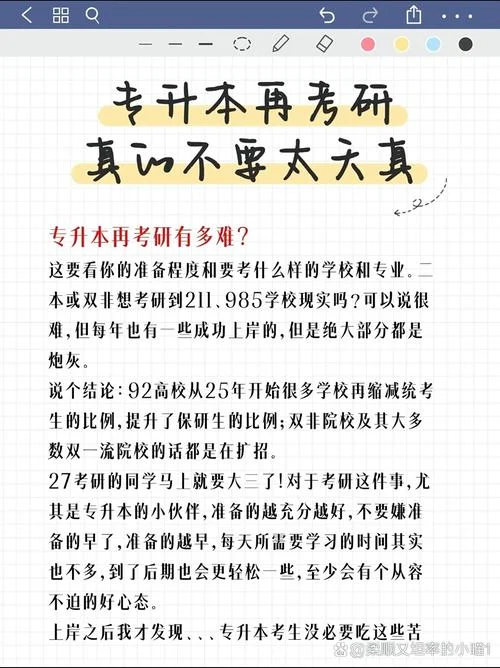 专升本再考研
真的不要太天真
专升本再考研有多难？
这要看你的准备程度和要考什么样的学校和专业。二
本或双非想考研到211、985学校现实吗？可以说很
难，但每年也有一些成功上岸的，但是绝大部分都是
炮灰。
说个结论：92高校从25年开始很多学校再缩减统考
生的比例，提升了保研生的比例；双非院校及其大多
数双一流院校的话都是在扩招。
27考研的同学马上就要大三了！对于考研这件事，尤
其是专升本的小伙伴，准备的越充分越好，不要嫌准
备的早了，准备的越早，每天所需要学习的时间其实
也不多，到了后期也会更轻松一些，至少会有个从容
不迫的好心态。
上岸之后我才发现、、、专升本考生没必要吃这些苦
@柔顺又坦率的小喵1